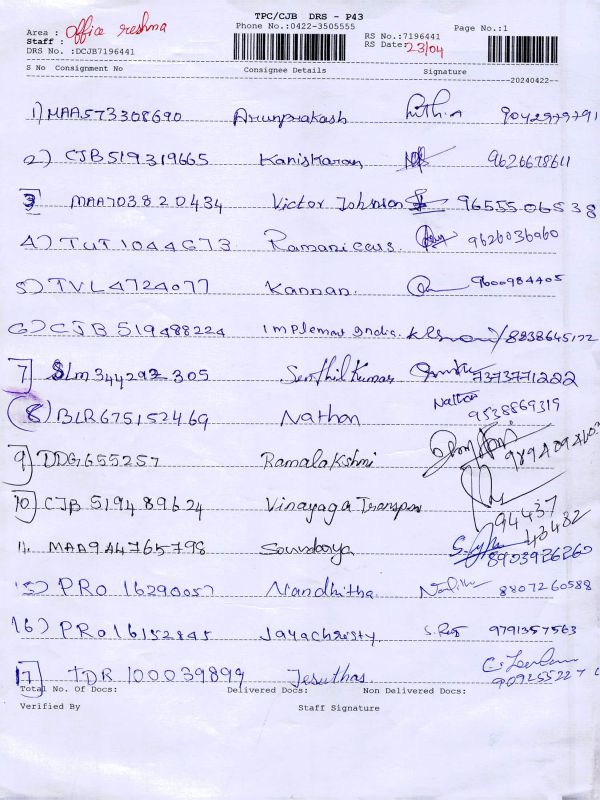 TPC/CJB DRS - P43
Area : Office reshma Phone No.:0422-3505555 RS No.:7196441 Page No.:1
Staff : RS Date: 23/04
DRS No. :DCJB7196441
S No Consignment No Consignee Details Signature
20240422
1) MAA573308690 Arunprakash Nithin 9042979791
2) CJB519319665 Kaniskaran 9626678611
3 MAA703820434 Victor Johnson 9655506538
4) TUT1044673 Ramanicaus 9626036960
5) TVL4724077 Kannan. 9600984405
6) CJB519488224 Implemart India. 8838645122
7] SLM344292305 Senthil Kumar 7373771222
8) BLR675152469 Nathan Nathan 9538869319
9] DDG655257 Ramalakshmi
10] CJB519489624 Vinayaga Transpor 94437 43482
11. MAA944765798 Soundarya 8903926260
15) PRO16290057 Nandhitha 8807260588
16) PRO16152845 Jayachristy. 9791357563
17] TDR100039899 Jesuthas.
Total No. Of Docs: Delivered Docs: Non Delivered Docs:
Verified By Staff Signature